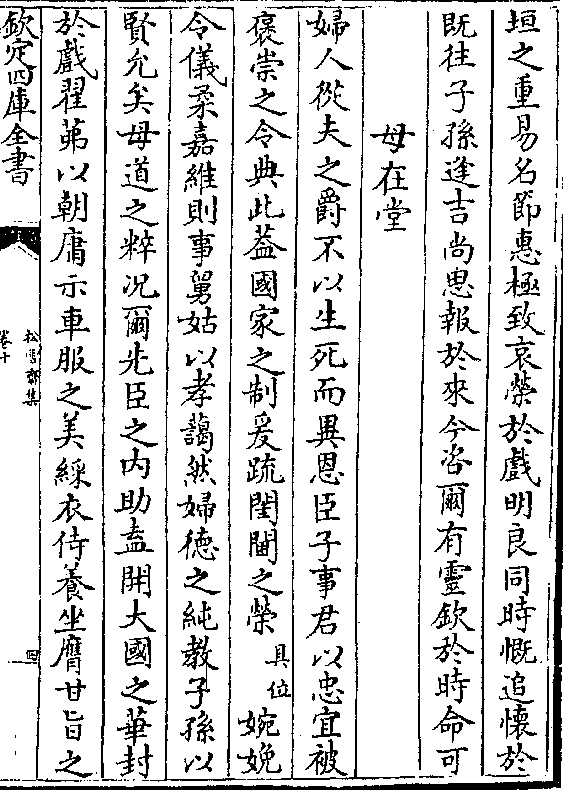 垣之重易名節惠極致哀榮於戲明良同時慨追懷於
既往子孫逢吉尚思報於來今咨爾有靈欽於時命可
母在堂
婦人從夫之爵不以生死而異恩臣子事君以忠宜被
褒崇之令典此葢國家之制爰疏閨閫之榮具位婉娩
令儀柔嘉維則事舅姑以孝藹然婦德之純教子孫以
賢允矣母道之粹况爾先臣之内助盍開大國之華封
於戲翟茀以朝庸示車服之美綵衣侍養坐膺甘旨之
欽定四庫全書
松雪齋集
卷十
四